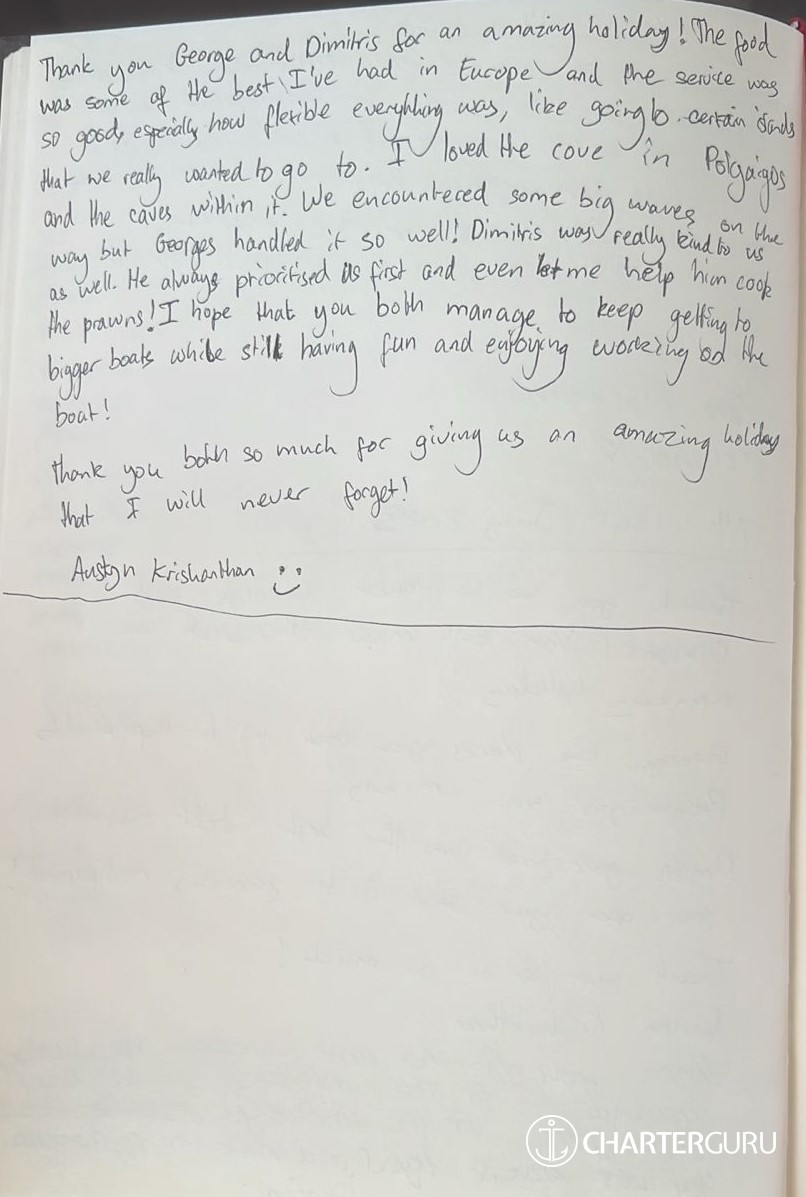 Thank you George and Dimitris for an amazing holiday! The food
was some of the best I've had in Europe and the service was
so good, especially how flexible everything was, like going to certain islands
that we really wanted to go to. I loved the cove in Polgaigos
and the caves within it. We encountered some big waves on the
way but Georges handled it so well! Dimitris was really kind to us
as well. He always prioritised us first and even let me help him cook
the prawns! I hope that you both manage to keep getting to
bigger boats while still having fun and enjoying working on the
boat!
Thank you both so much for giving us an amazing holiday
that I will never forget!
Austyn Krishanthan
CHARTERGURU